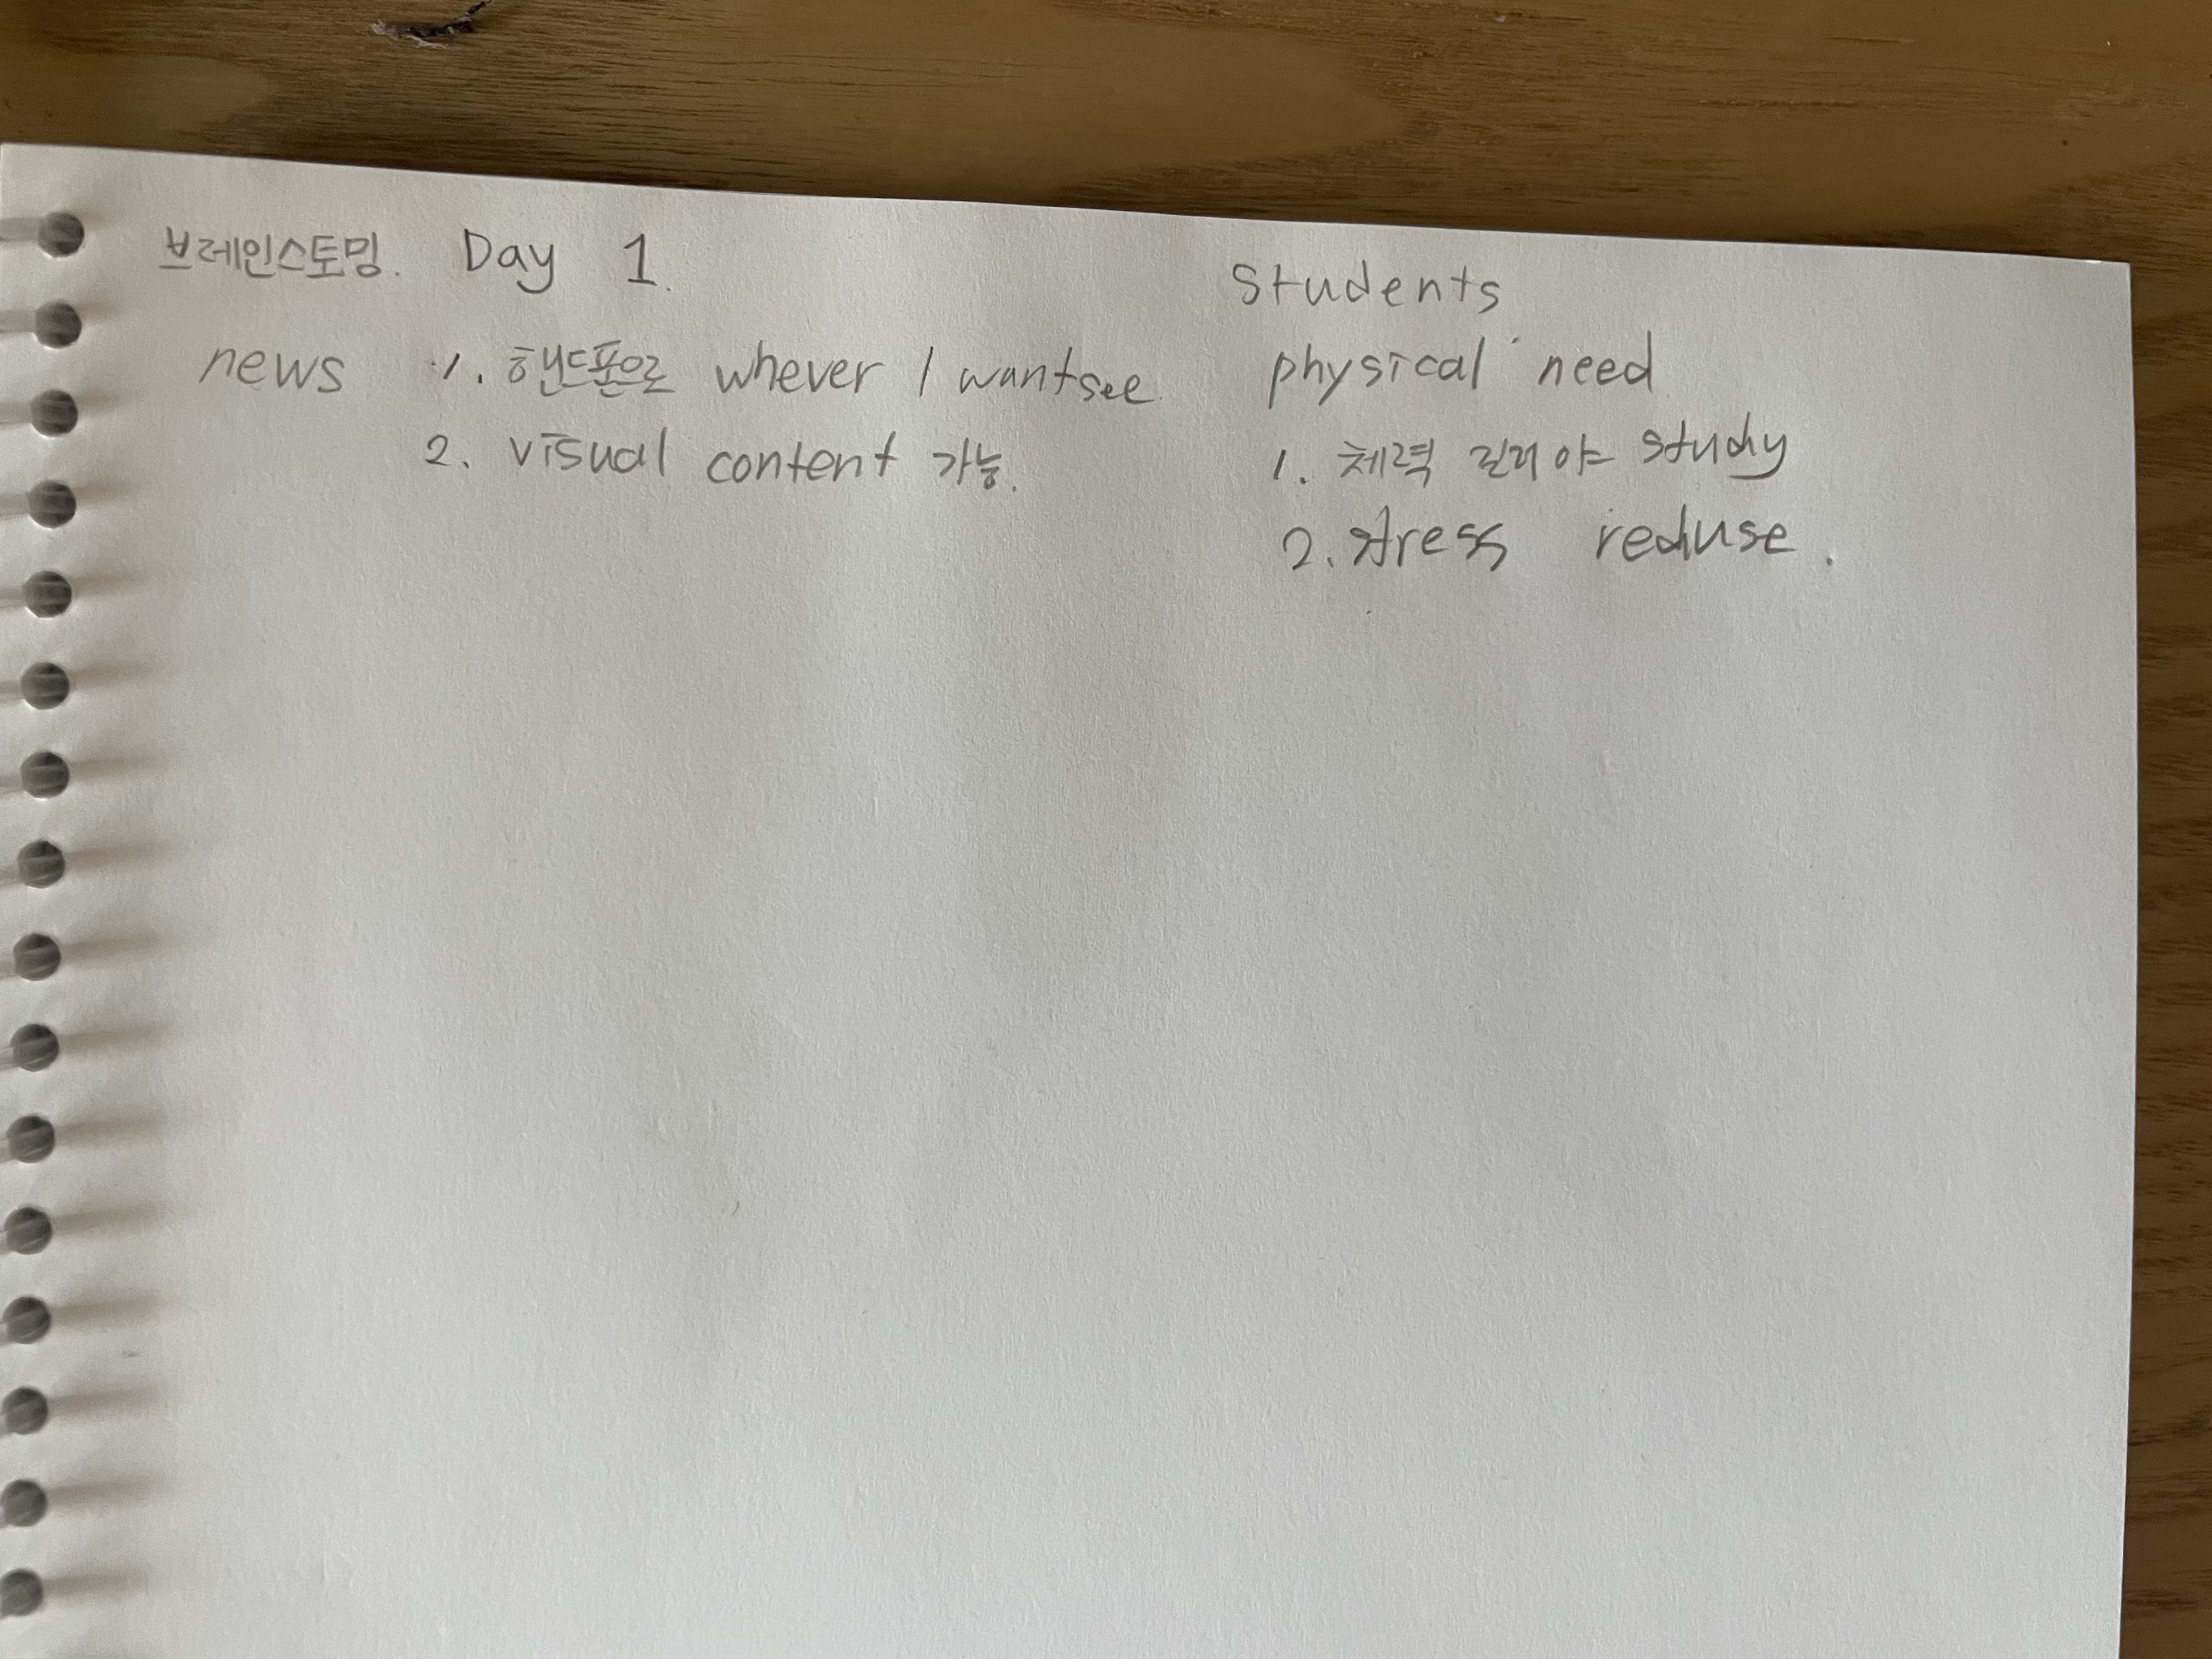 브레인스토밍. Day 1.
news 1. 핸드폰으로 whever I want see.
2. visual content 가능.
students
physical need
1. 체력 길러야 study
2. stress reduse.